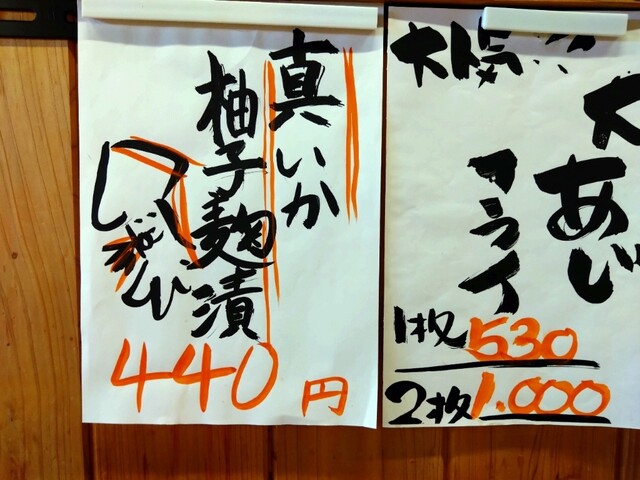 真いか
柚子麹漬
440円
大人気!!
大あじ
フライ
1枚530
2枚1.000